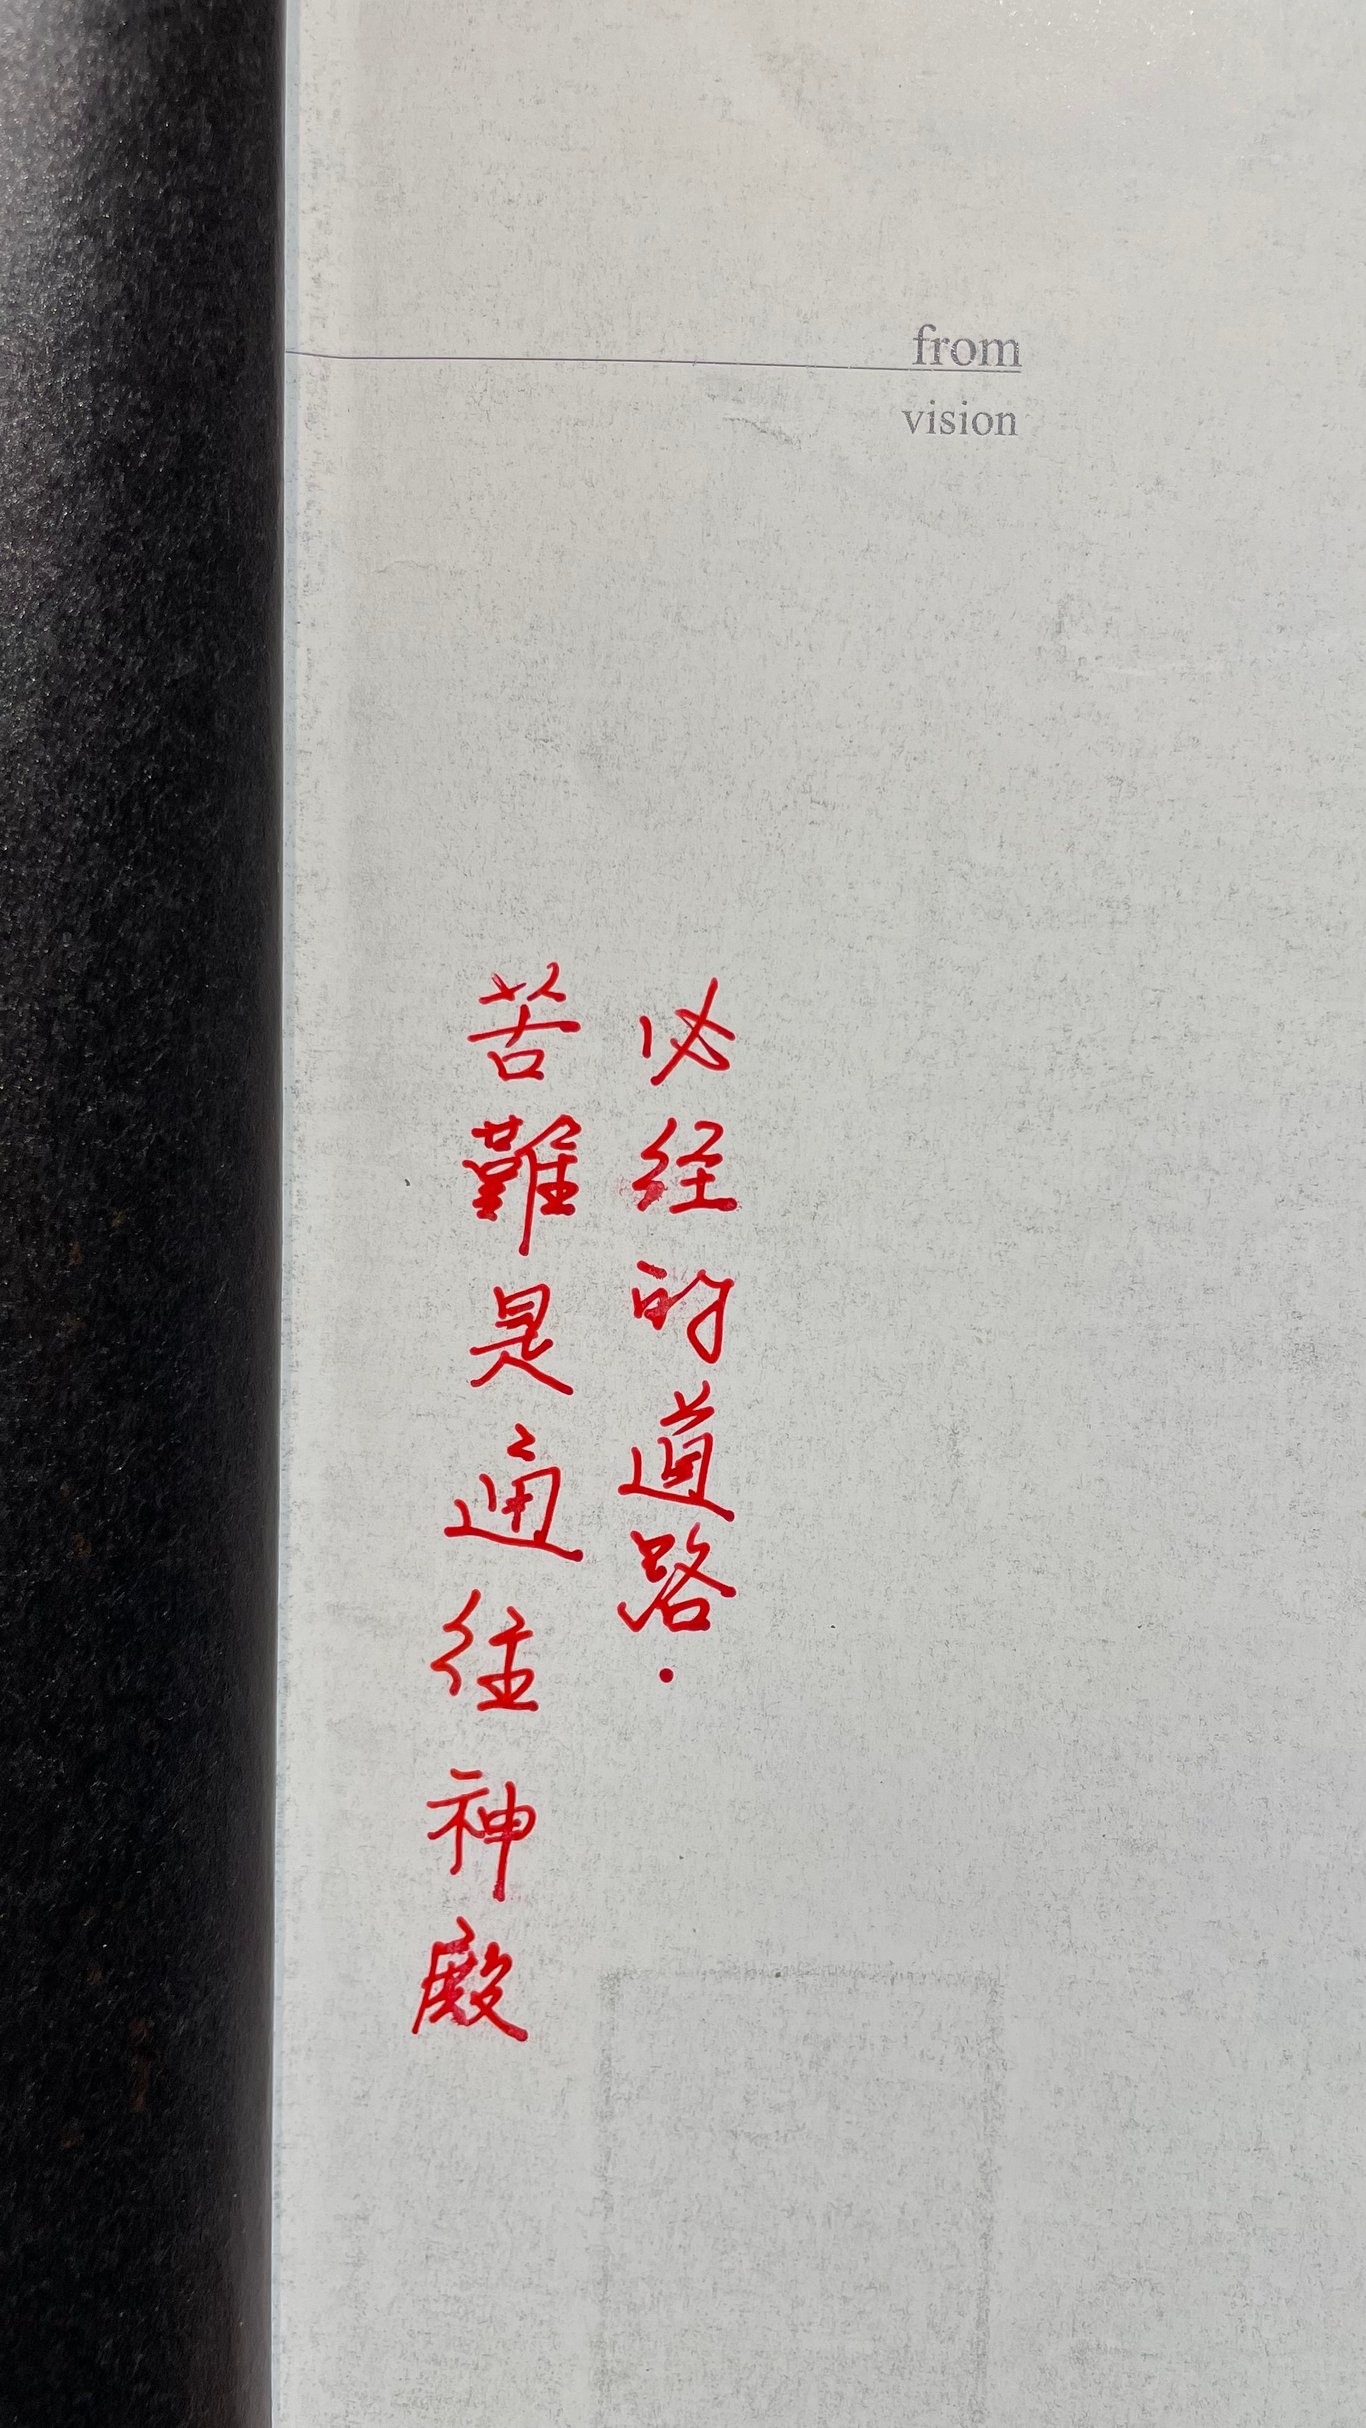 from
vision
苦難是通往神殿
必经的道路.